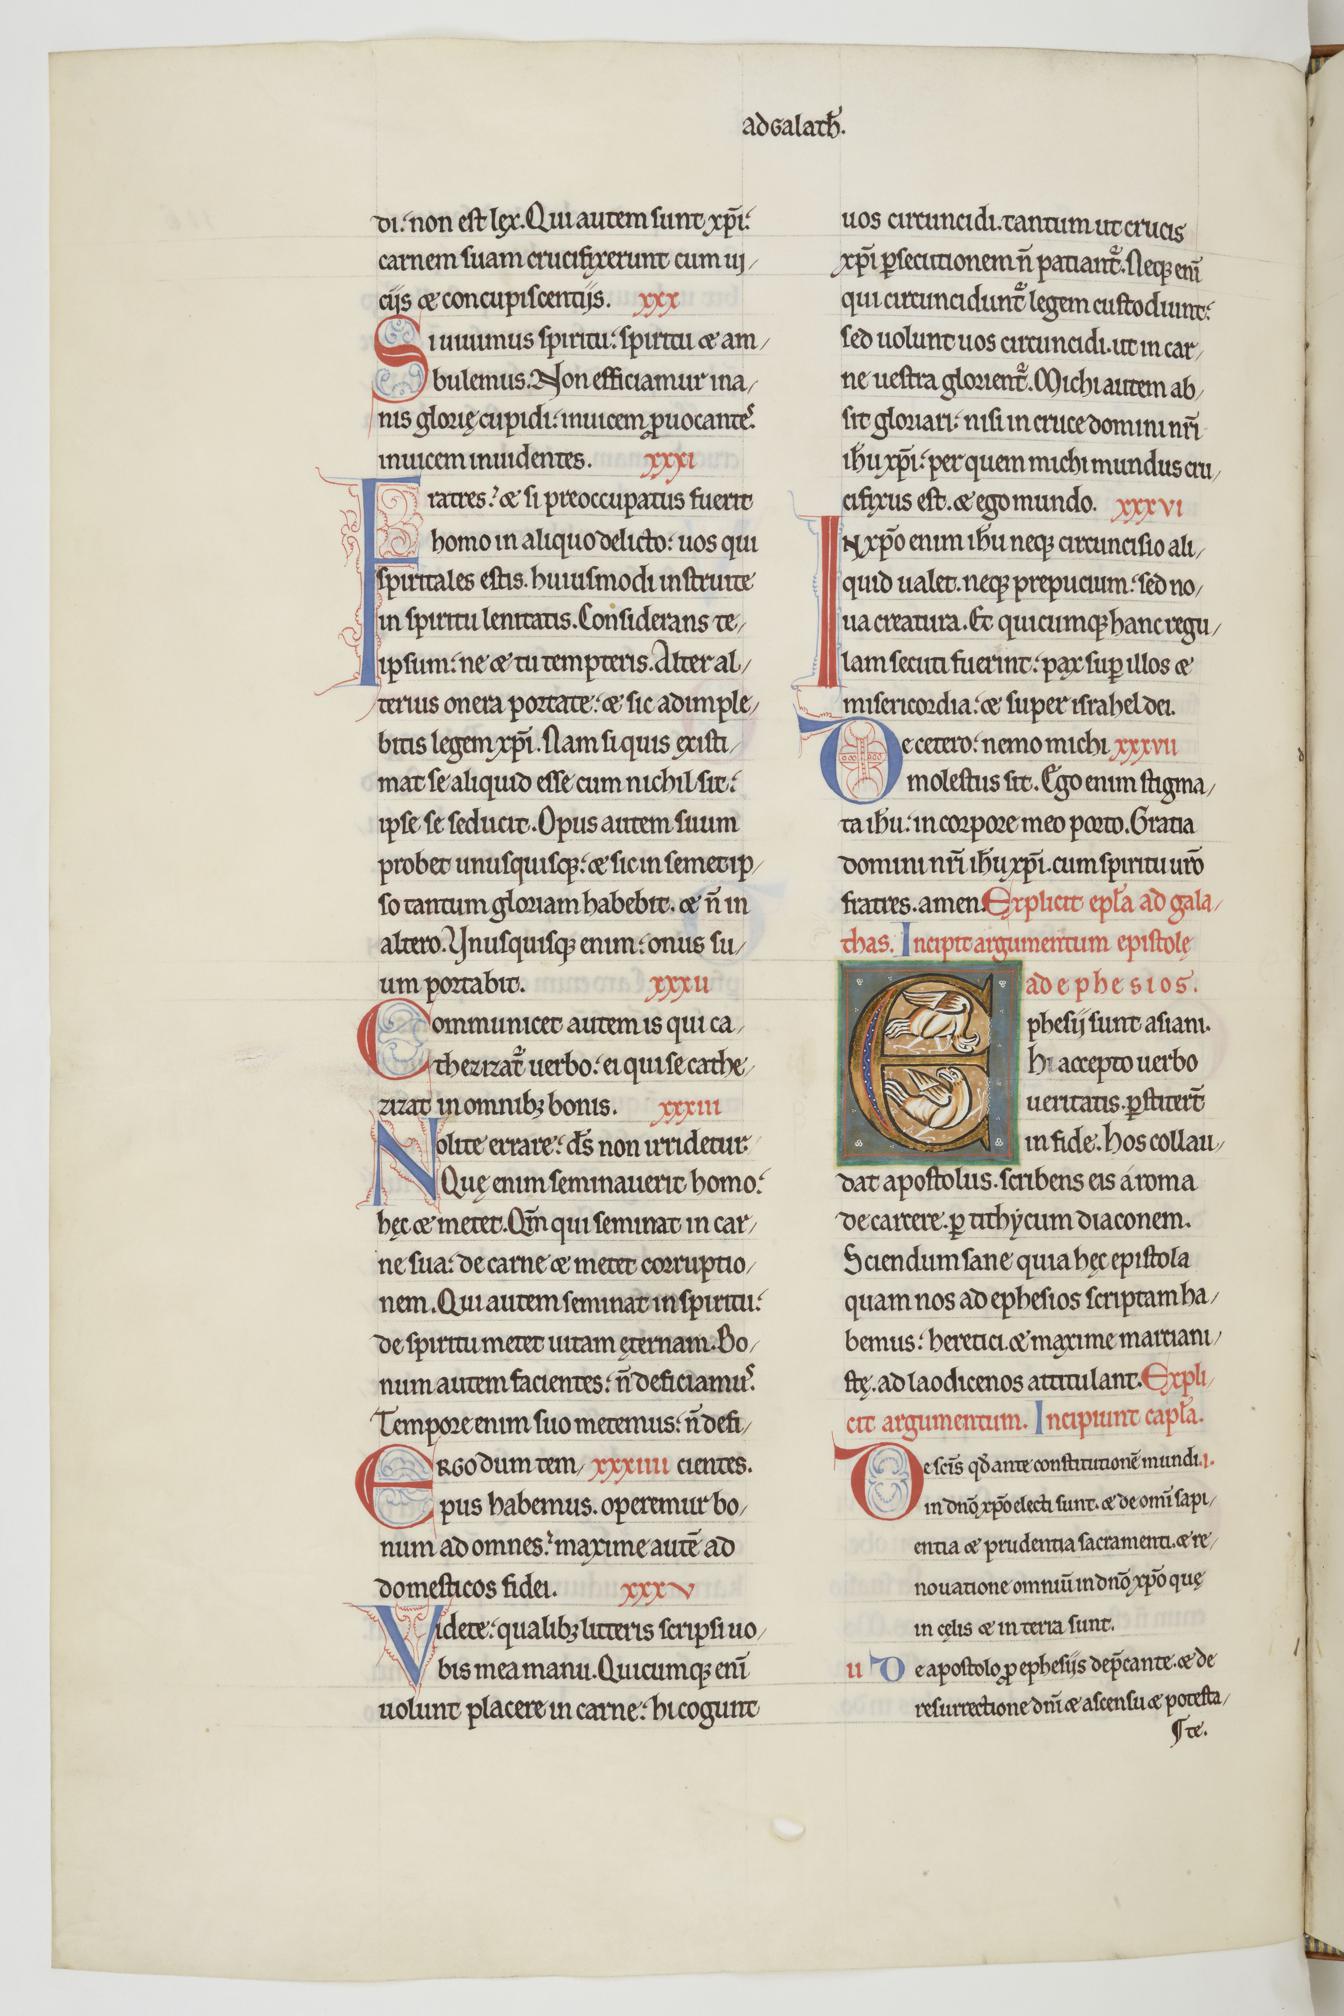 ad galath̅.
di: non est lex. Qui autem sunt xp̅i:
carnem suam crucifixerunt cum ui/
ciis & concupiscentiis. xxx
Si uiuimus spiritu: spiritu & am/
bulemus. Non efficiamur ina/
nis glorię cupidi: inuicem ꝓuocantes
inuicem inuidentes. xxxi
Fratres: & si preoccupatus fuerit
homo in aliquo delicto: uos qui
spiritales estis. huiusmodi instruite
in spiritu lenitatis. Considerans te/
ipsum: ne & tu tempteris. Alter al/
terius onera portate: & sic adimple/
bitis legem xp̅i. Nam si quis existi/
mat se aliquid esse cum nichil sit:
ipse se seducit. Opus autem suum
probet unusquisq;: & sic in semetip/
so tantum gloriam habebit. & n̅ in
altero. Vnusquisq; enim: onus su/
um portabit. xxxii
Communicet autem is qui ca/
thezizat᷑ uerbo: ei qui se cathe/
zizat in omnib; bonis. xxxiii
Nolite errare: d̅s non irridetur.
Quę enim seminauerit homo:
hęc & metet. Qm̅ qui seminat in car/
ne sua: de carne & metet corruptio/
nem. Qui autem seminat in spiritu:
de spiritu metet uitam ęternam. Bo/
num autem facientes: n̅ deficiamus.
Tempore enim suo metemus: n̅ defi/
Ergo dum tem/ xxxiiii cientes.
pus habemus. operemur bo/
num ad omnes: maxime aute̅ ad
domesticos fidei. xxxv
Videte: qualib; litteris scripsi uo/
bis mea manu. Quicumq; eni̅
uolunt placere in carne: hi cogunt
uos circuncidi. tantum ut crucis
xp̅i ꝑsecutionem n̅ patiant᷑. Neq; eni̅
qui circuncidunt᷑ legem custodiunt:
sed uolunt uos circuncidi. ut in car/
ne uestra glorient᷑. Michi autem ab/
sit gloriari: nisi in cruce domini nr̅i
ih̅u xp̅i: per quem michi mundus cru/
cifixus est. & ego mundo. xxxvi
IN xp̅o enim ih̅u neq; circuncisio ali/
quid ualet. neq; prepucium: sed no/
ua creatura. Et quicumq; hanc regu/
lam secuti fuerint: pax suꝑ illos &
misericordia: & super israhel dei.
De cetero: nemo michi xxxvii
molestus sit. Ego enim stigma/
ta ih̅u: in corpore meo porto. Gratia
domini nr̅i ih̅u xp̅i. cum spiritu ur̅o
fratres. amen. Explicit epl̅a ad gala/
thas. Incipit argumentum epistolę
ad ephesios.
Ephesii sunt asiani.
hi accepto uerbo
ueritatis. ꝑstitert̅
in fide. hos collau/
dat apostolus. scribens eis á roma
de carcere. ꝑ tithycum diaconem.
Sciendum sane quia hęc epistola
quam nos ad ephesios scriptam ha/
bemus: heretici. & maxime marciani/
stę. ad laodicenos attitulant. Expli/
cit argumentum. Incipiunt capl̅a.
De sc̅is qd̅ ante constitutione̅ mundi. i.
in dn̅o xp̅o electi sunt. & de om̅i sapi/
entia & prudentia sacramenti. & re/
nouatione omniu̅ in dn̅o xp̅o quę
in cęlis & in terra sunt.
ii De apostolo ꝓ ephesiis dep̅cante. & de
resurrectione dn̅i & ascensu & potesta/
te.